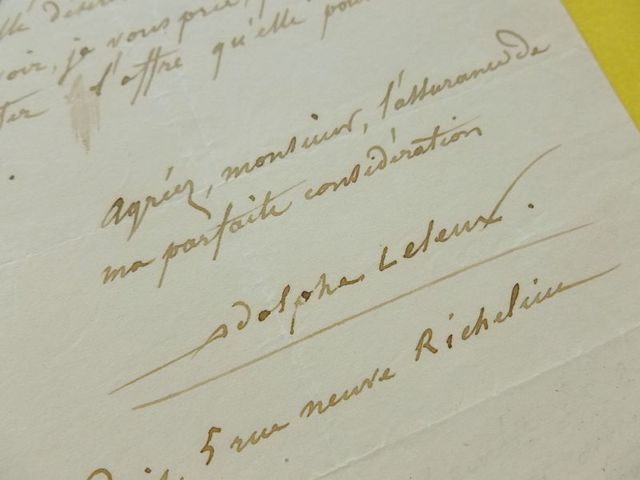 voir, je vous prie,
l'offre qu'elle
Agréez, monsieur, l'assurance de
ma parfaite considération
Adolphe Leleux.
5 rue neuve Richelieu